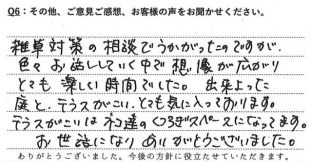 Q6：その他、ご意見ご感想、お客様の声をお聞かせください。
雑草対策の相談でうかがったのですが、
色々お話ししていく中で想像が広がり
とても楽しい時間でした。出来上った
庭と、テラスがこい、とても気に入っております。
テラスがこいは ネコ達のくつろぎスペースになってます。
お世話になりありがとうございました。
ありがとうございました。今後の方針に役立たせていただきます。